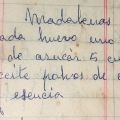 Madalenas
ada huevo uno
de azucar 5 cu
ceite polvos de
esencia